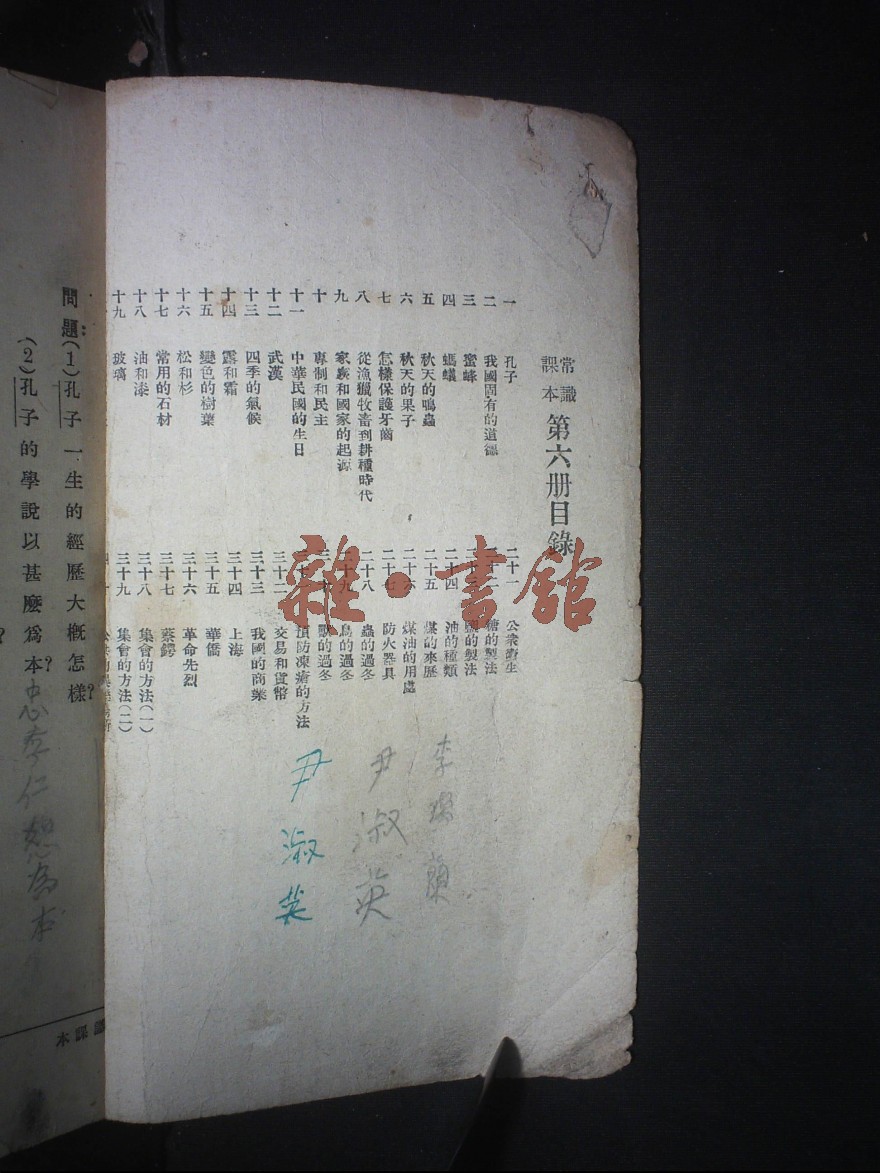 常識課本 第六册目錄
一 孔子
二 我國固有的道德
三 蜜蜂
四 螞蟻
五 秋天的鳴蟲
六 秋天的果子
七 怎樣保護牙齒
八 從漁獵牧畜到耕種時代
九 家族和國家的起源
十 專制和民主
十一 中華民國的生日
十二 武漢
十三 四季的氣候
十四 露和霜
十五 變色的樹葉
十六 松和杉
十七 常用的石材
十八 油和漆
十九 玻璃
二十一 公衆衞生
二十二 糖的製法
二十三 鹽的製法
二十四 油的種類
二十五 煤的來歷
二十六 煤油的用處
二十七 防火器具
二十八 蟲的過冬
二十九 鳥的過冬
三十 獸的過冬
三十一 預防凍瘡的方法
三十二 交易和貨幣
三十三 我國的商業
三十四 上海
三十五 華僑
三十六 革命先烈
三十七 蔡鍔
三十八 集會的方法(一)
三十九 集會的方法(二)
李 蘭
尹淑英
尹淑英
雜·書館
問題:(1)孔子一生的經歷大概怎樣?
(2)孔子的學說以甚麼爲本?忠孝仁恕為本
課本